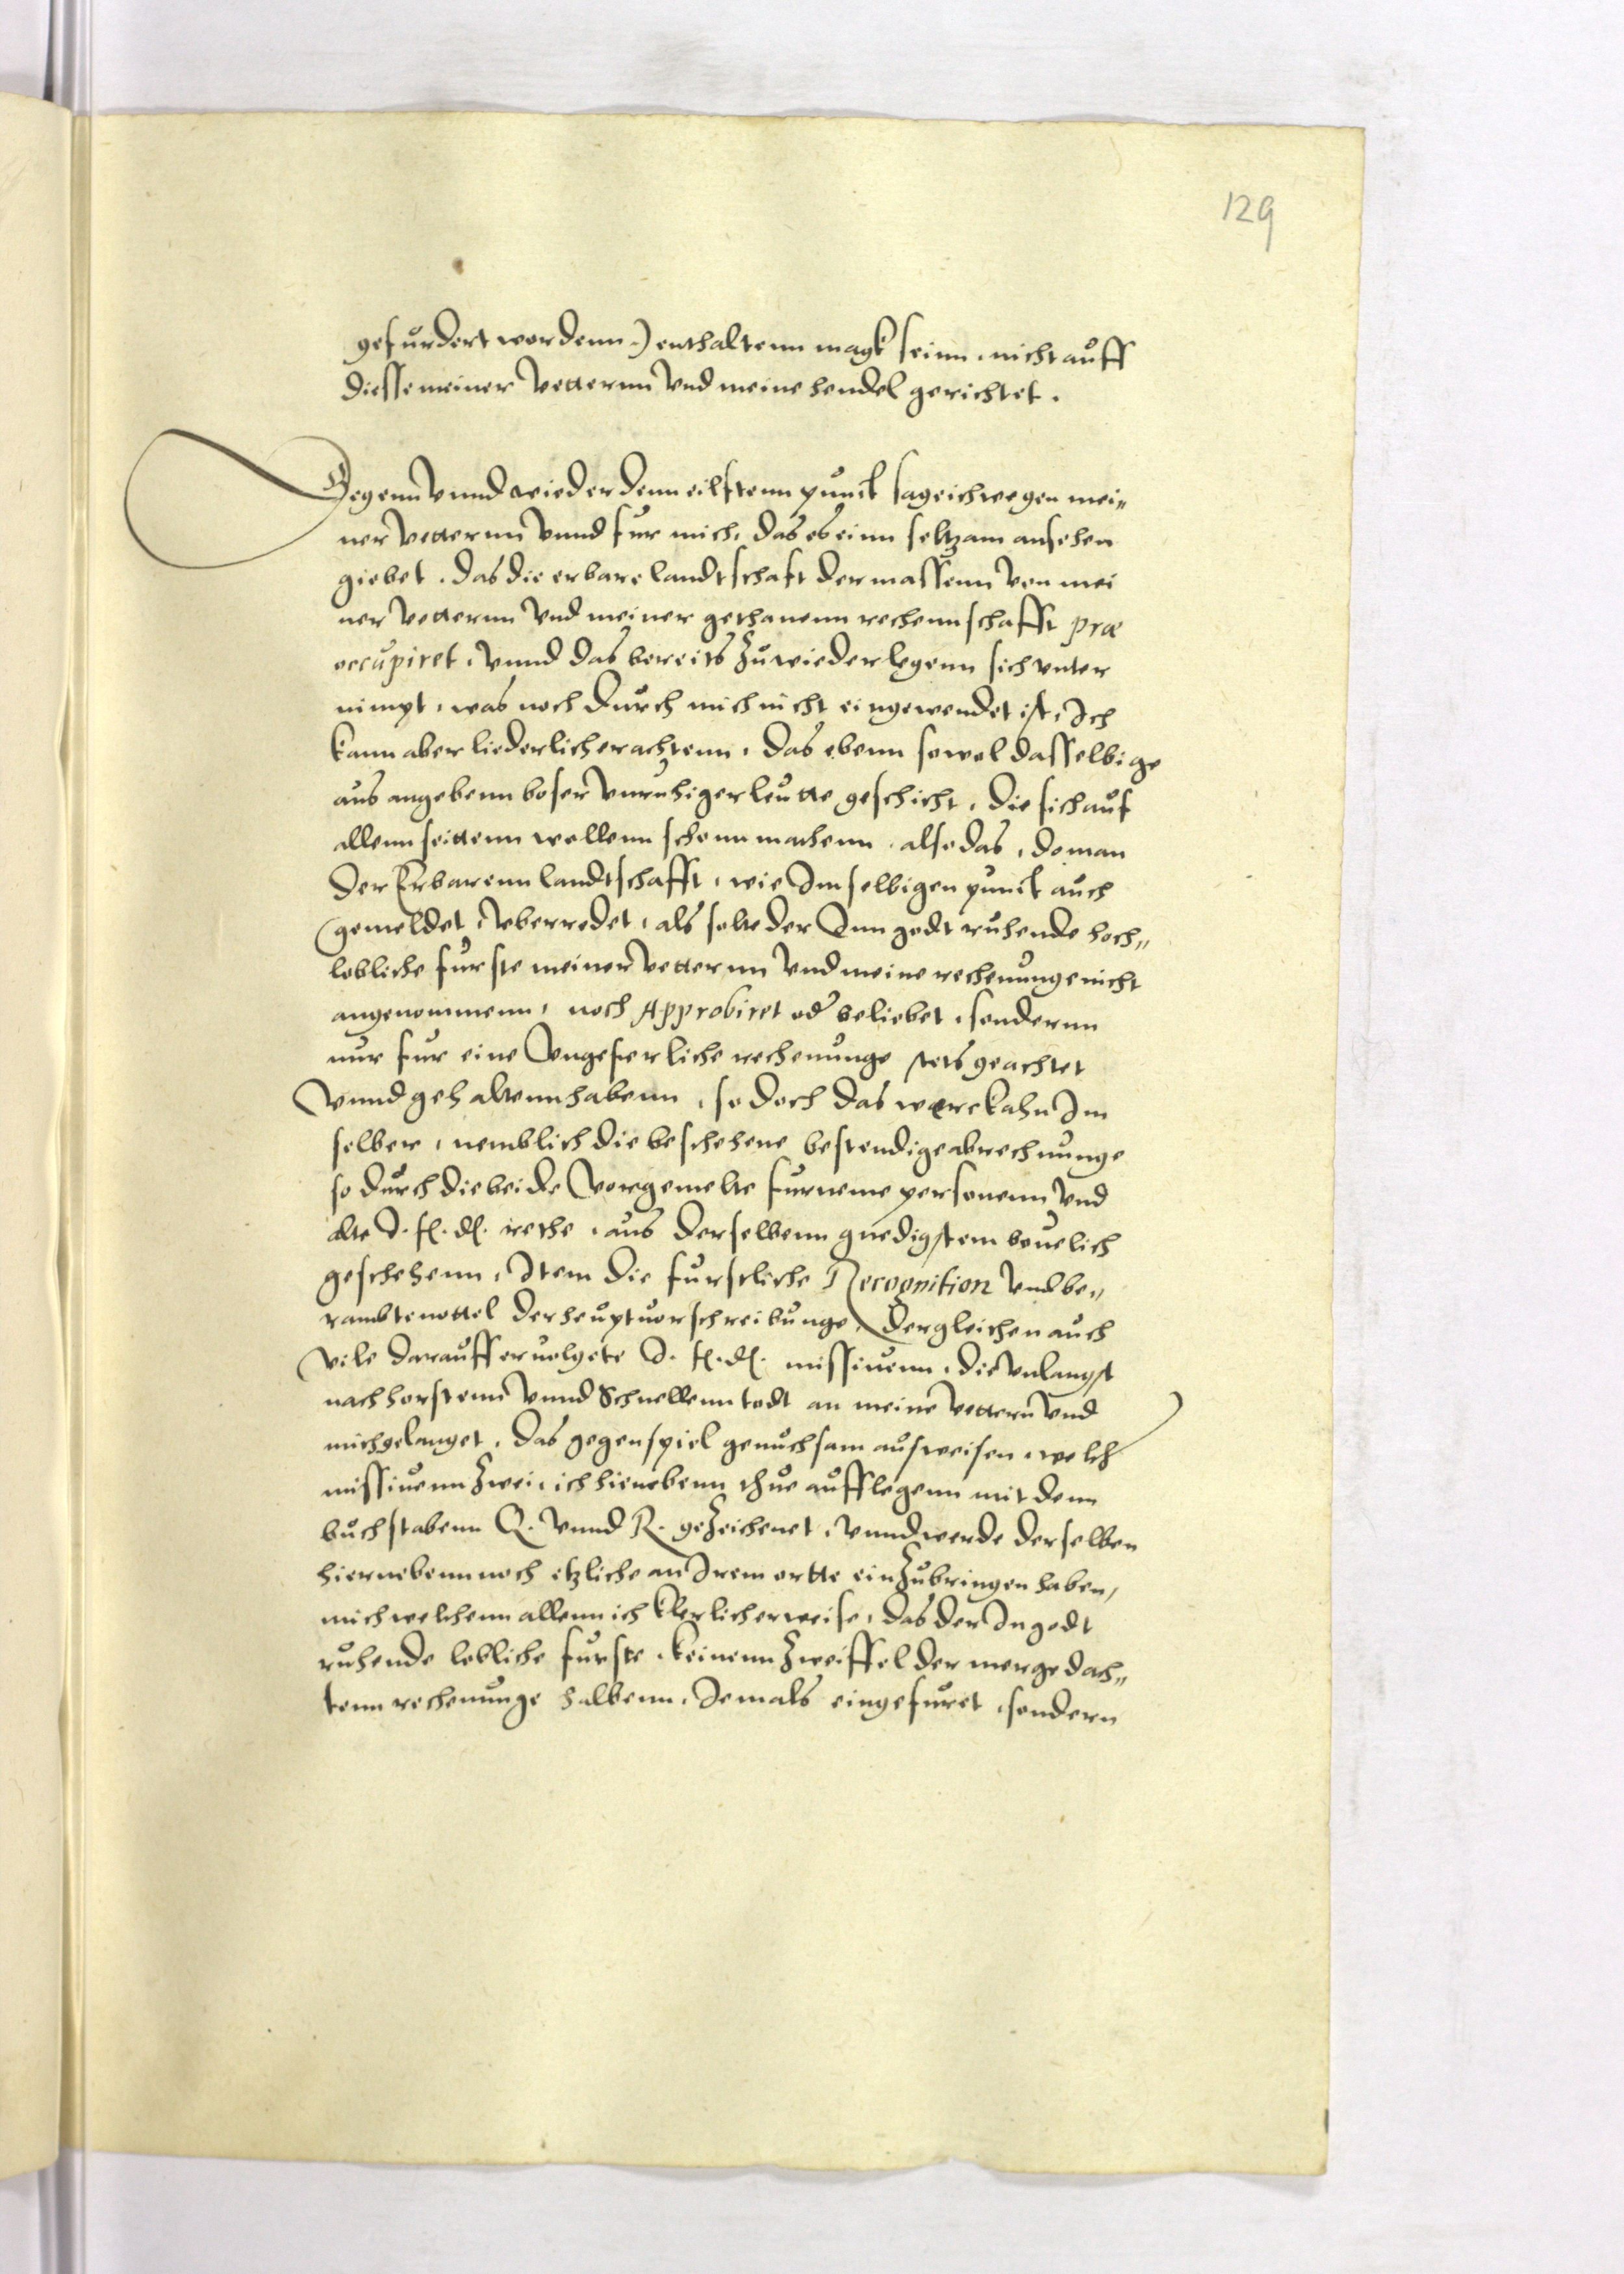 129
gefurdert wordenn) enthaltenn magk seinn, nicht auff
diesse meiner Vetternn Vnd meine hendel gerichtet.
Gegenn Vnnd wieder denn eilftenn punct sage ich wegen mei„
ner Vetternn Vnnd fur mich, das es einn seltzam ansehen
giebet, das die erbare landtschaft dermassenn Von mei
ner Vetternn Vnd meiner gethanenn rechennschafft præ
occupiret, Vnnd das bereits Zu wiederlegenn sich vnter
nimpt, was noch durch mich nicht eingewendet ist, Ich
kann aber liederlich erachtenn, das ebenn sowol dasselbige
aus angebenn boser Vnruhiger leutte geschicht, die sich auf
allenn seittenn wollenn schonn machenn, also das, do man
der Erbarenn landtschafft, wie Im selbigen punct auch
gemeldet, Veberredet, als solte der Inn godt ruhende hoch„
lobliche furste meiner Vetternn Vnd meine rechenunge nicht
angenommenn, noch Approbiret oder beliebet, sondernn
nur fur eine Vngeferliche rechenunge stets geachtet
Vnnd gehaltenn habenn, so doch das werck ahn Im
selber, nemblich die beschehene bestendige abrechnunge
so durch die beide Vorgemelte furneme personenn Vnd
alte I. f. d. rethe, aus derselbenn gnedigstem beuelich
geschehenn, Item die furstliche Recognition Vnd be„
rambte nottel der heuptuorschreibunge, dergleichen auch
Vile darauff eruolgete I. f. d. missiuenn, die Vnlangst
nach horstenn Vnnd Schnellenn todt an meine Vettern Vnd
mich gelanget, das gegenspiel genuchsam ausweisen, welch
missiuenn Zwei, ich hienebenn thue aufflegenn mit denn
buchstabenn Q. Vnnd R. geZeichenet, Vnnd werde derselben
hiernebenn noch etzliche an Irem ortte einZubringen haben,
mich welchenn allenn ich klerlich erweise, das der In godt
ruhende lobliche furste, keinenn Zweiffel der merge dach„
tenn rechenunge halbenn, Iemals eingefuret, sondern